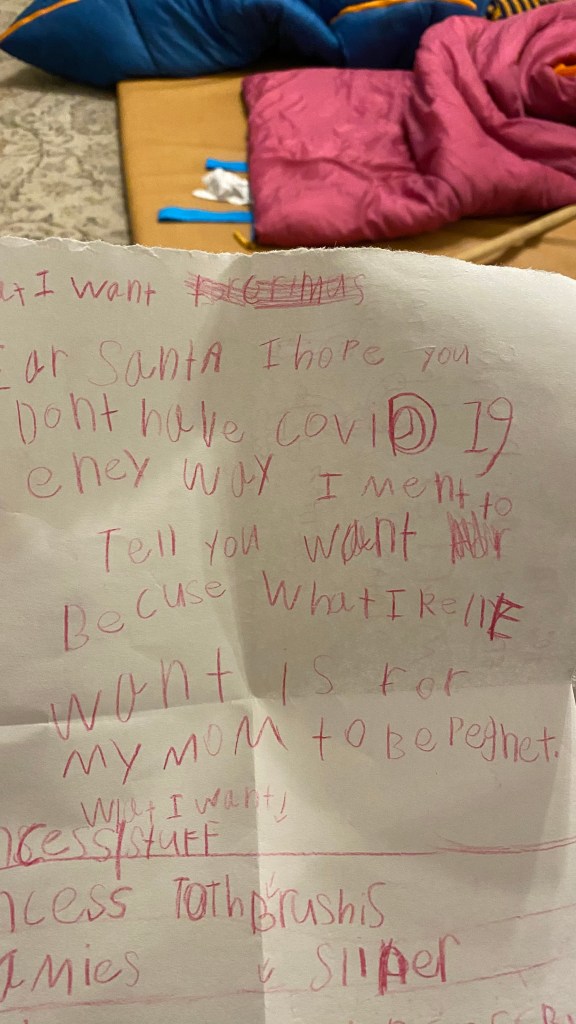 at I want for Crimus
Ear Santa I hope you
Dont have covid 19
eney way I ment to
Tell you want
Becuse What I Relle
want is for
my mom to be Peghet.
What I want
ncess stuff
ncess Tothbrushis
mies Slipper